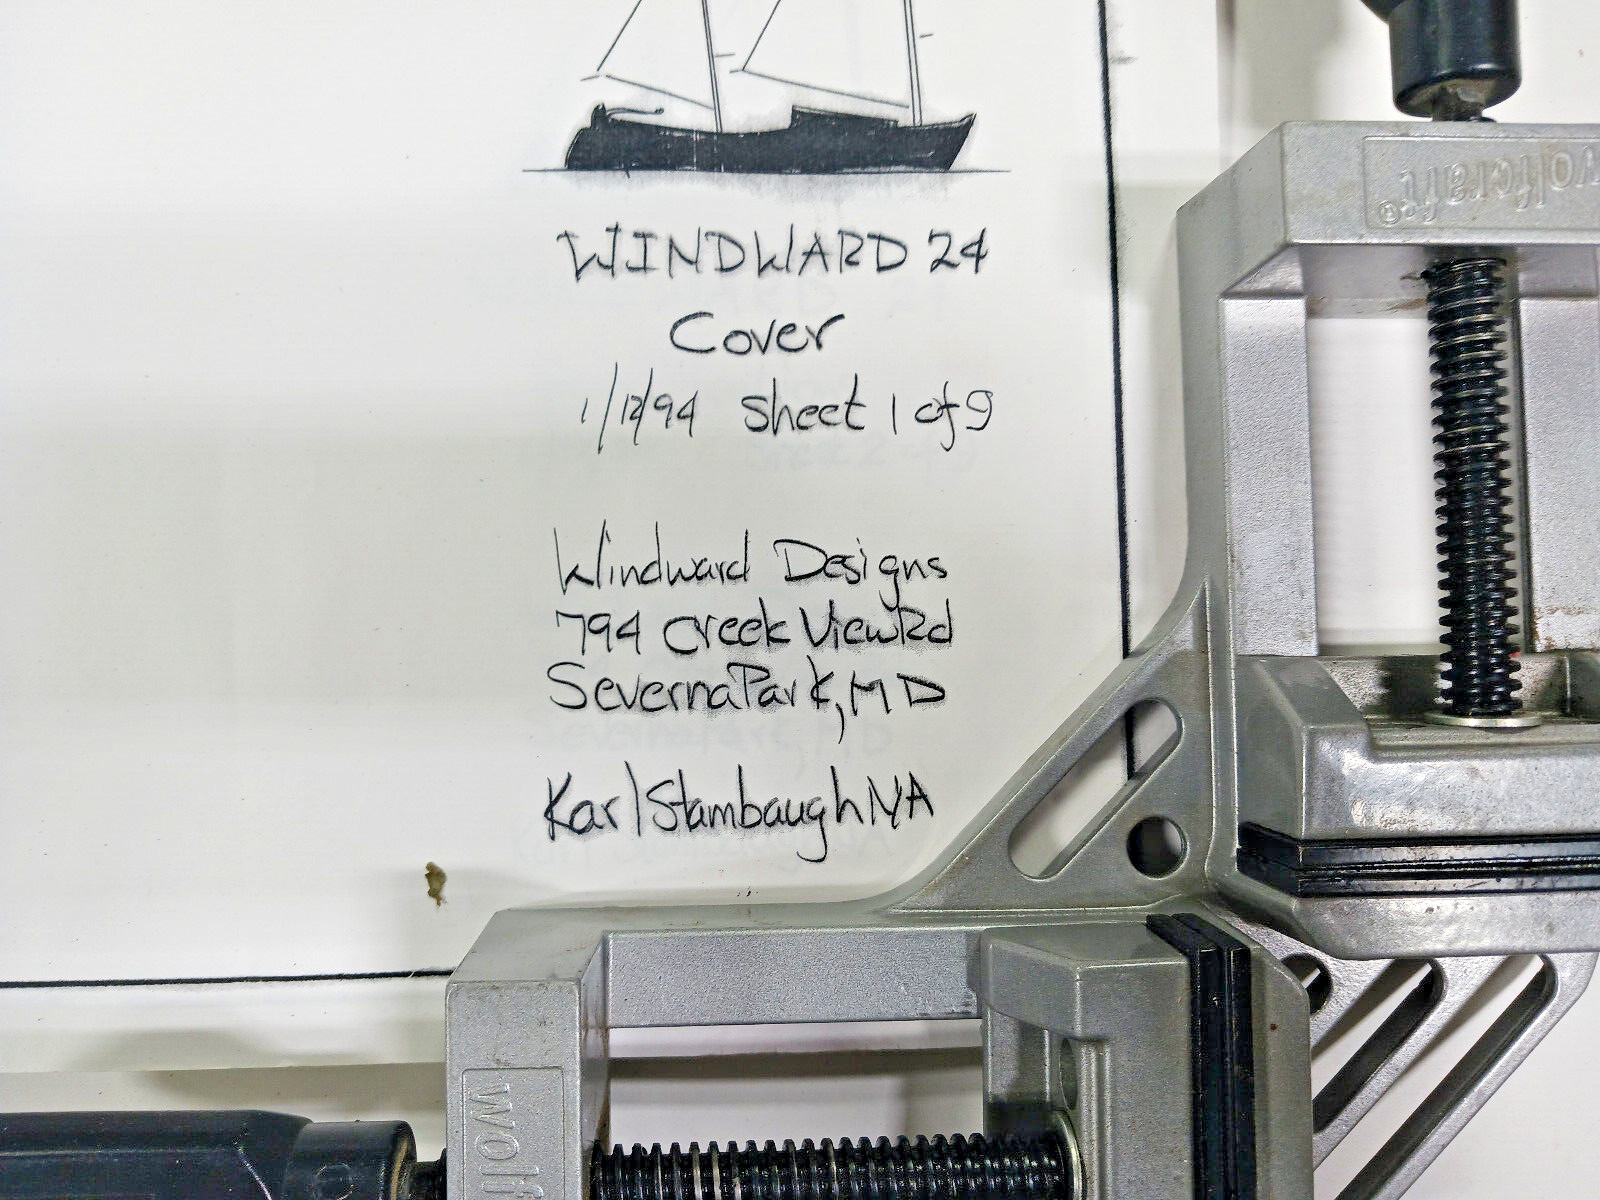 WINDWARD 24
Cover
1/12/94 Sheet 1 of 9
Windward Designs
794 Creek View Rd
Severna Park, MD
Karl Stambaugh NA
wolfcraft®
wolf